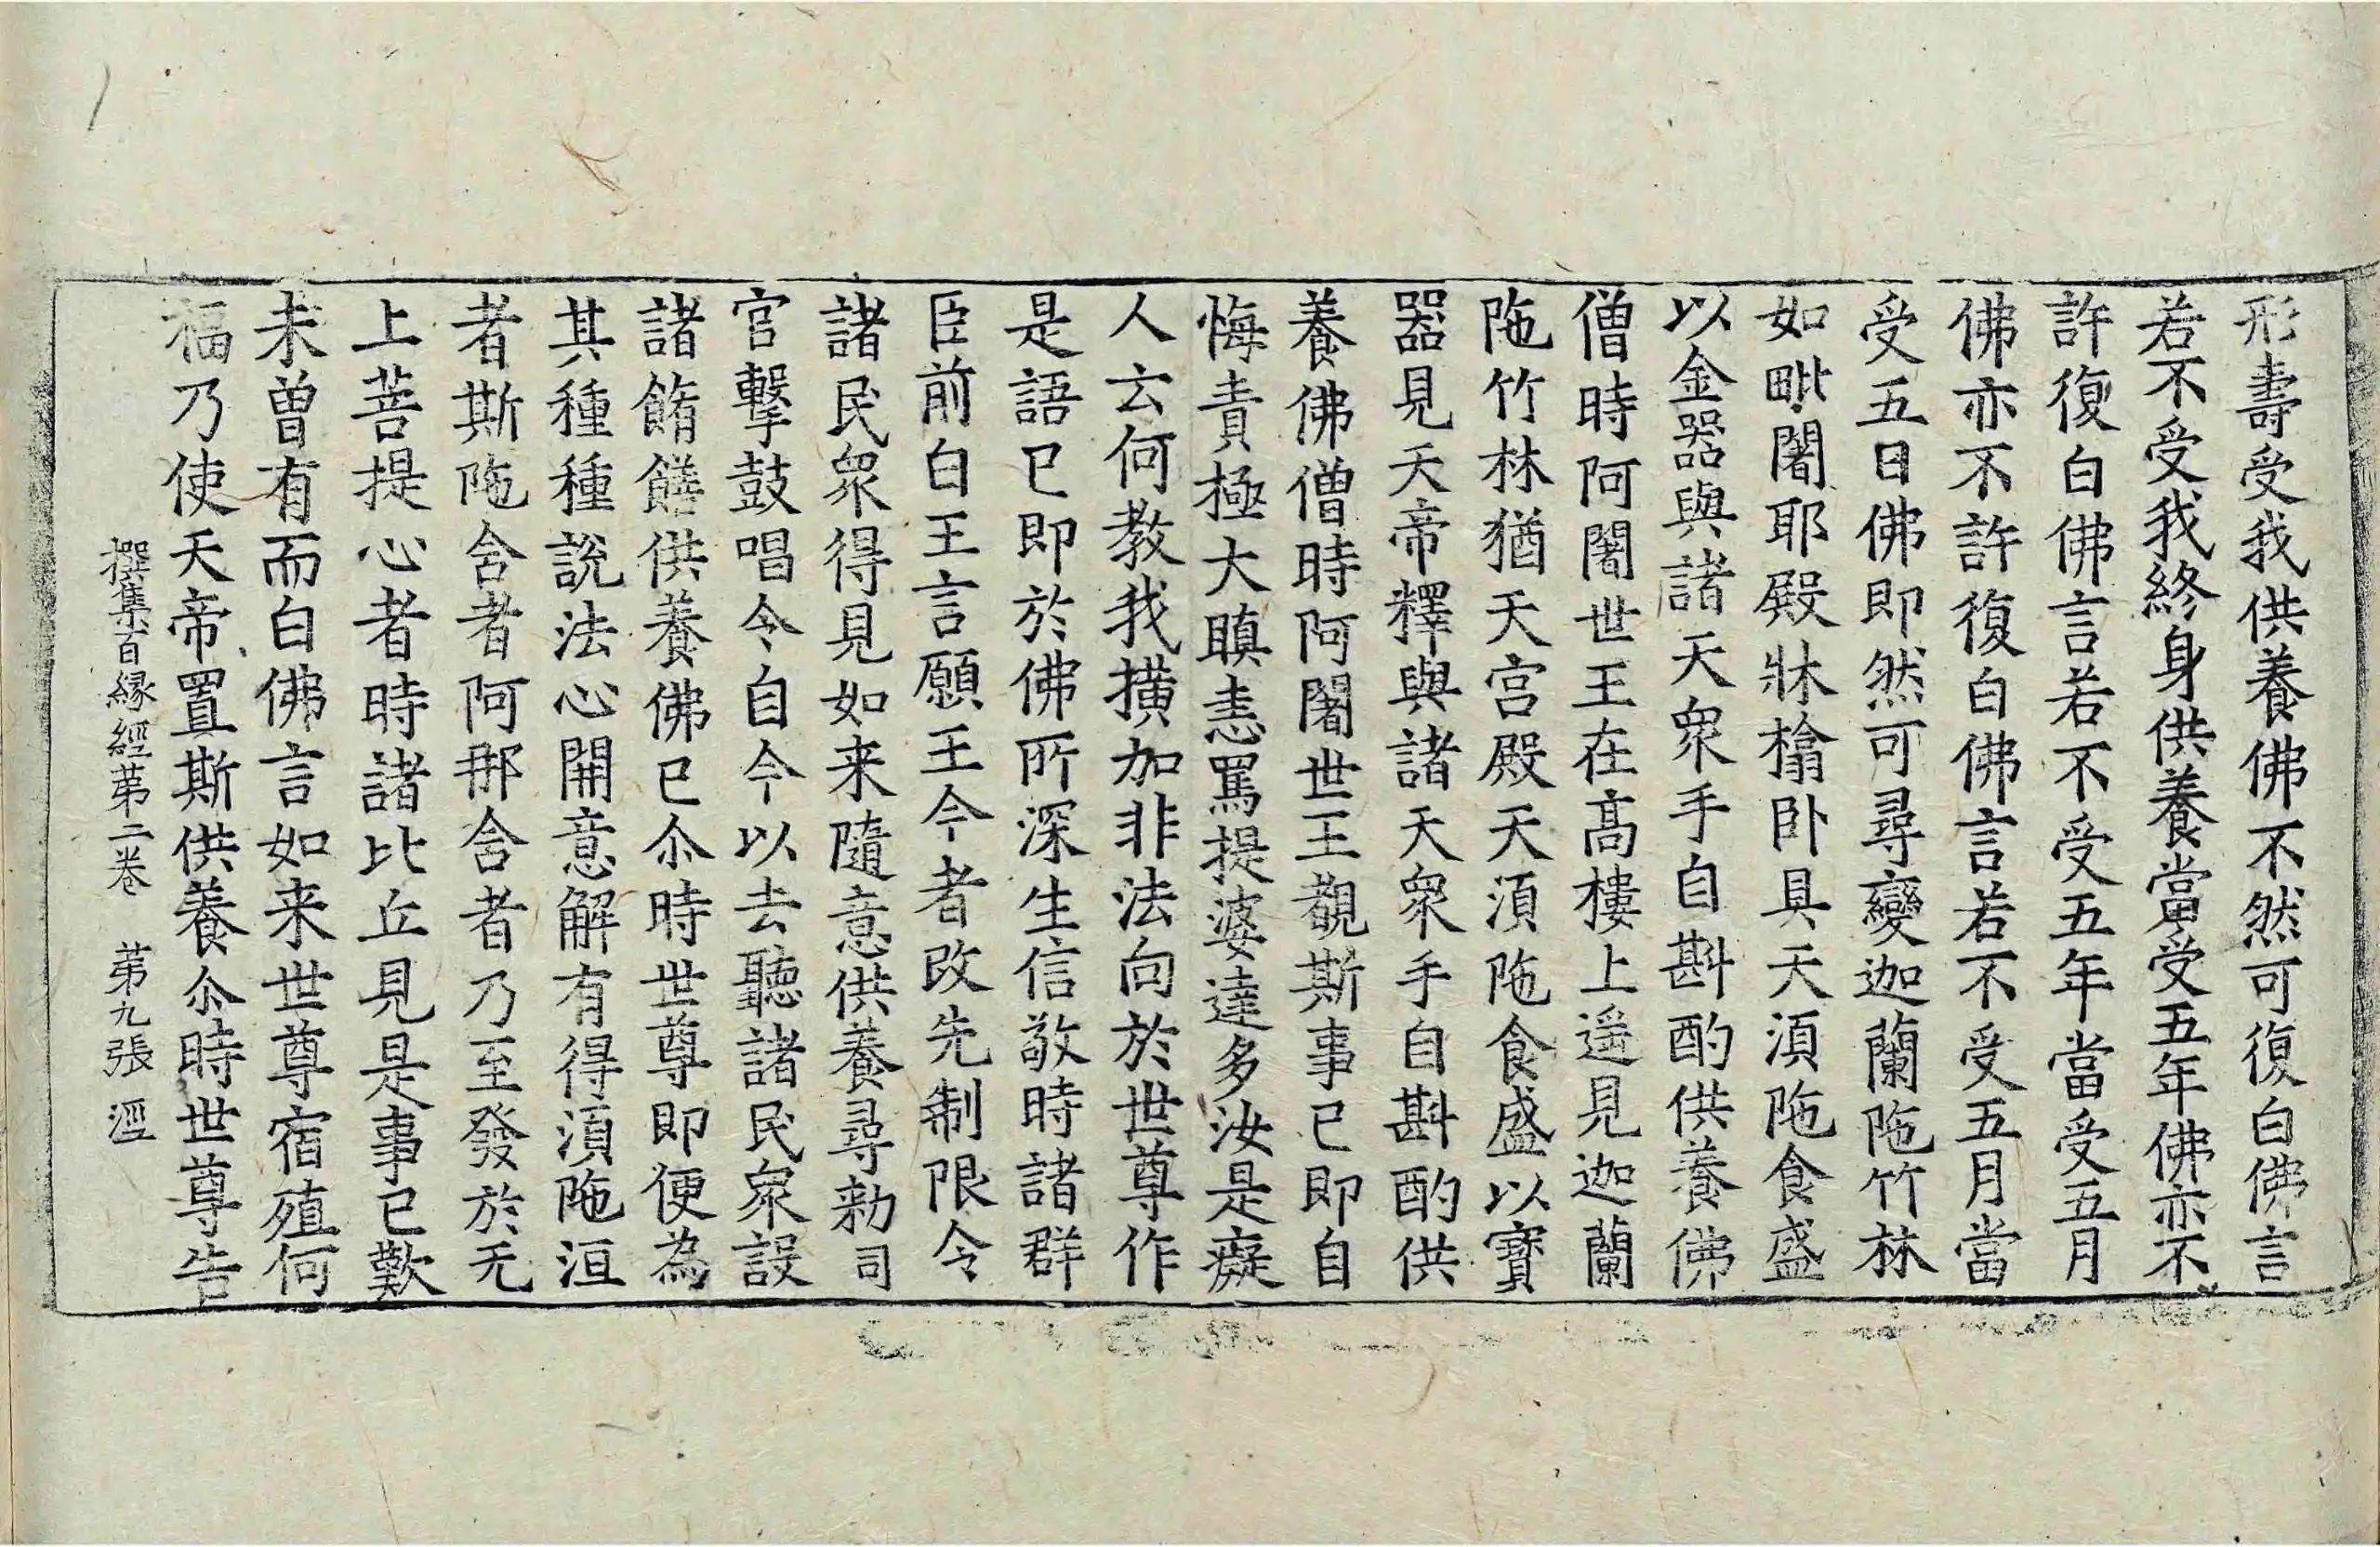 形壽受我供養佛不然可復白佛言
若不受我終身供養當受五年佛亦不
許復白佛言若不受五年當受五月
佛亦不許復白佛言若不受五月當
受五日佛即然可尋變迦蘭陁竹林
如毗闍耶殿牀榻卧具天湏陁食盛
以金器與諸天衆手自斟酌供養佛
僧時阿闍世王在髙樓上遥見迦蘭
陁竹林猶天宫殿天湏陁食盛以寶
器見天帝釋與諸天衆手自斟酌供
養佛僧時阿闍世王覩斯事已即自
悔責極大瞋恚罵提婆達多汝是癡
人云何教我撗加非法向於世尊作
是語已即於佛所深生信敬時諸群
臣前白王言願王今者改先制限令
諸民衆得見如来隨意供養尋勑司
官擊鼓唱令自今以去聽諸民衆設
諸餚饍供養佛已尒時世尊即便為
其種種説法心開意解有得湏陁洹
者斯陁含者阿那含者乃至發於无
上菩提心者時諸比丘見是事已歎
未曾有而白佛言如来世尊宿殖何
福乃使天帝置斯供養尒時世尊告
撰集百緣經苐二卷　苐九張　溼